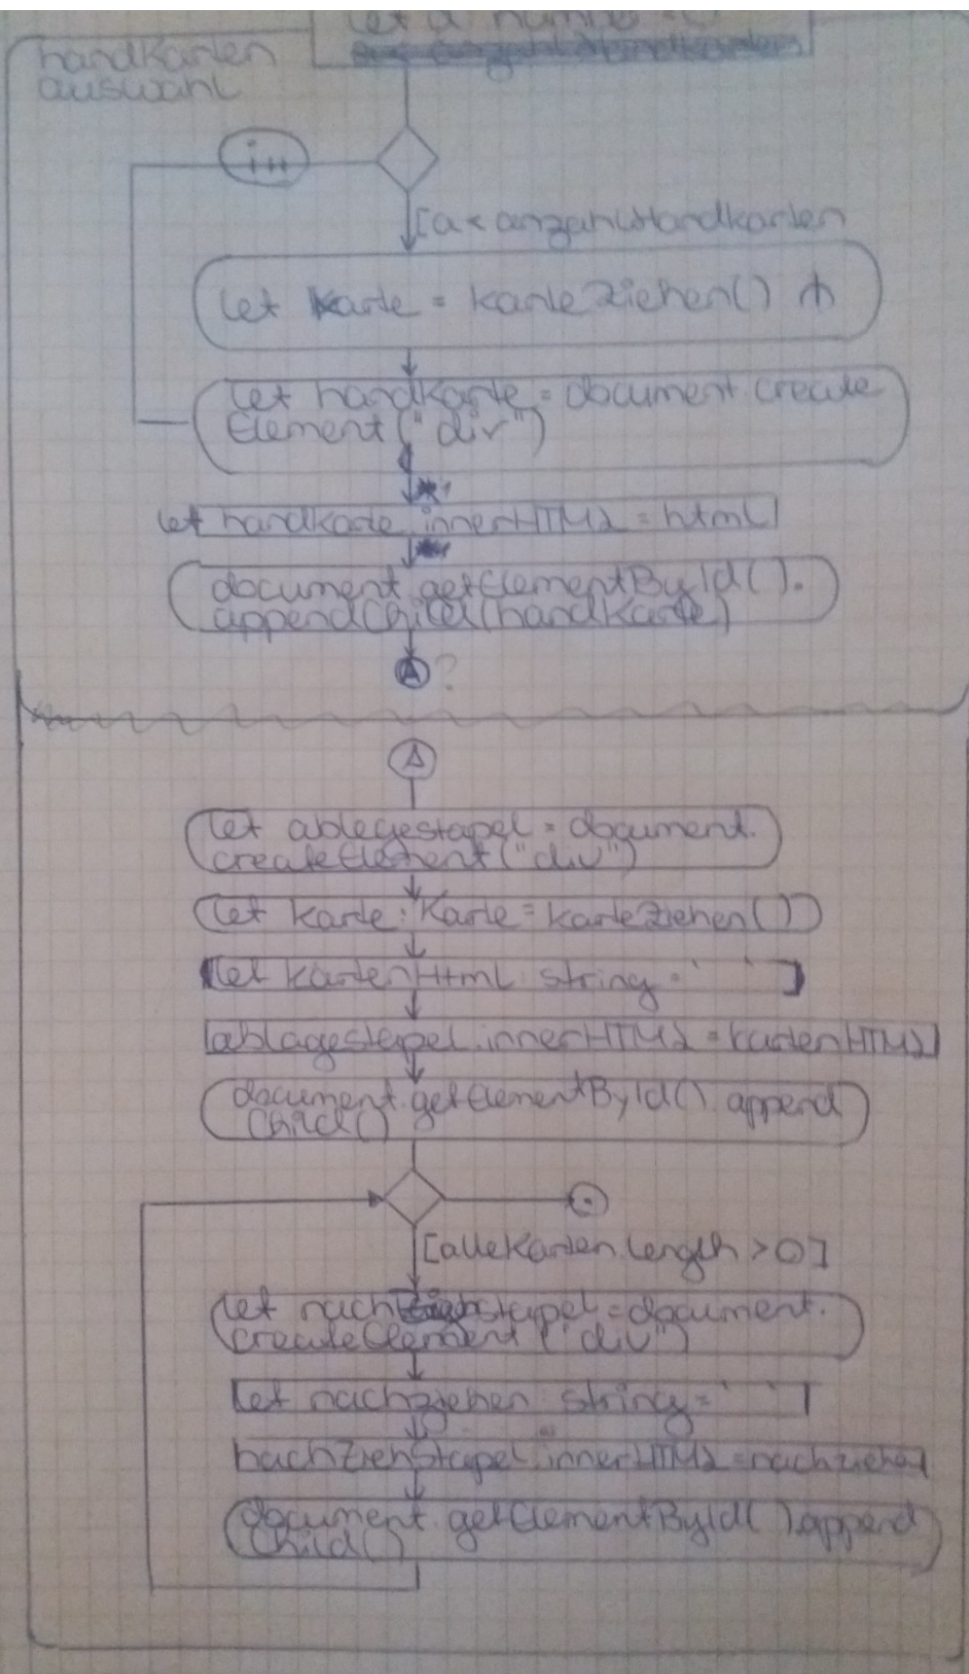 let a numbe
handkarten
auswahl
i++
[a < anzahlHandkarten
let karte = karteZiehen() ⋔
let handkarte = document.create
Element("div")
let handkarte.innerHTML = html
document.getElementById().
appendChild(handKarte)
A ?
A
let ablegestapel = document.
createElement("div")
let karte: Karte = karteZiehen()
let kartenHtml: string = ` `
ablagestapel.innerHTML = kartenHTML
document.getElementById().append
Child()
[alleKarten.length > 0]
let nachziehstapel = document.
createElement("div")
let nachziehen: string = ` `
nachziehstapel.innerHTML = nachziehen
document.getElementById().append
Child()